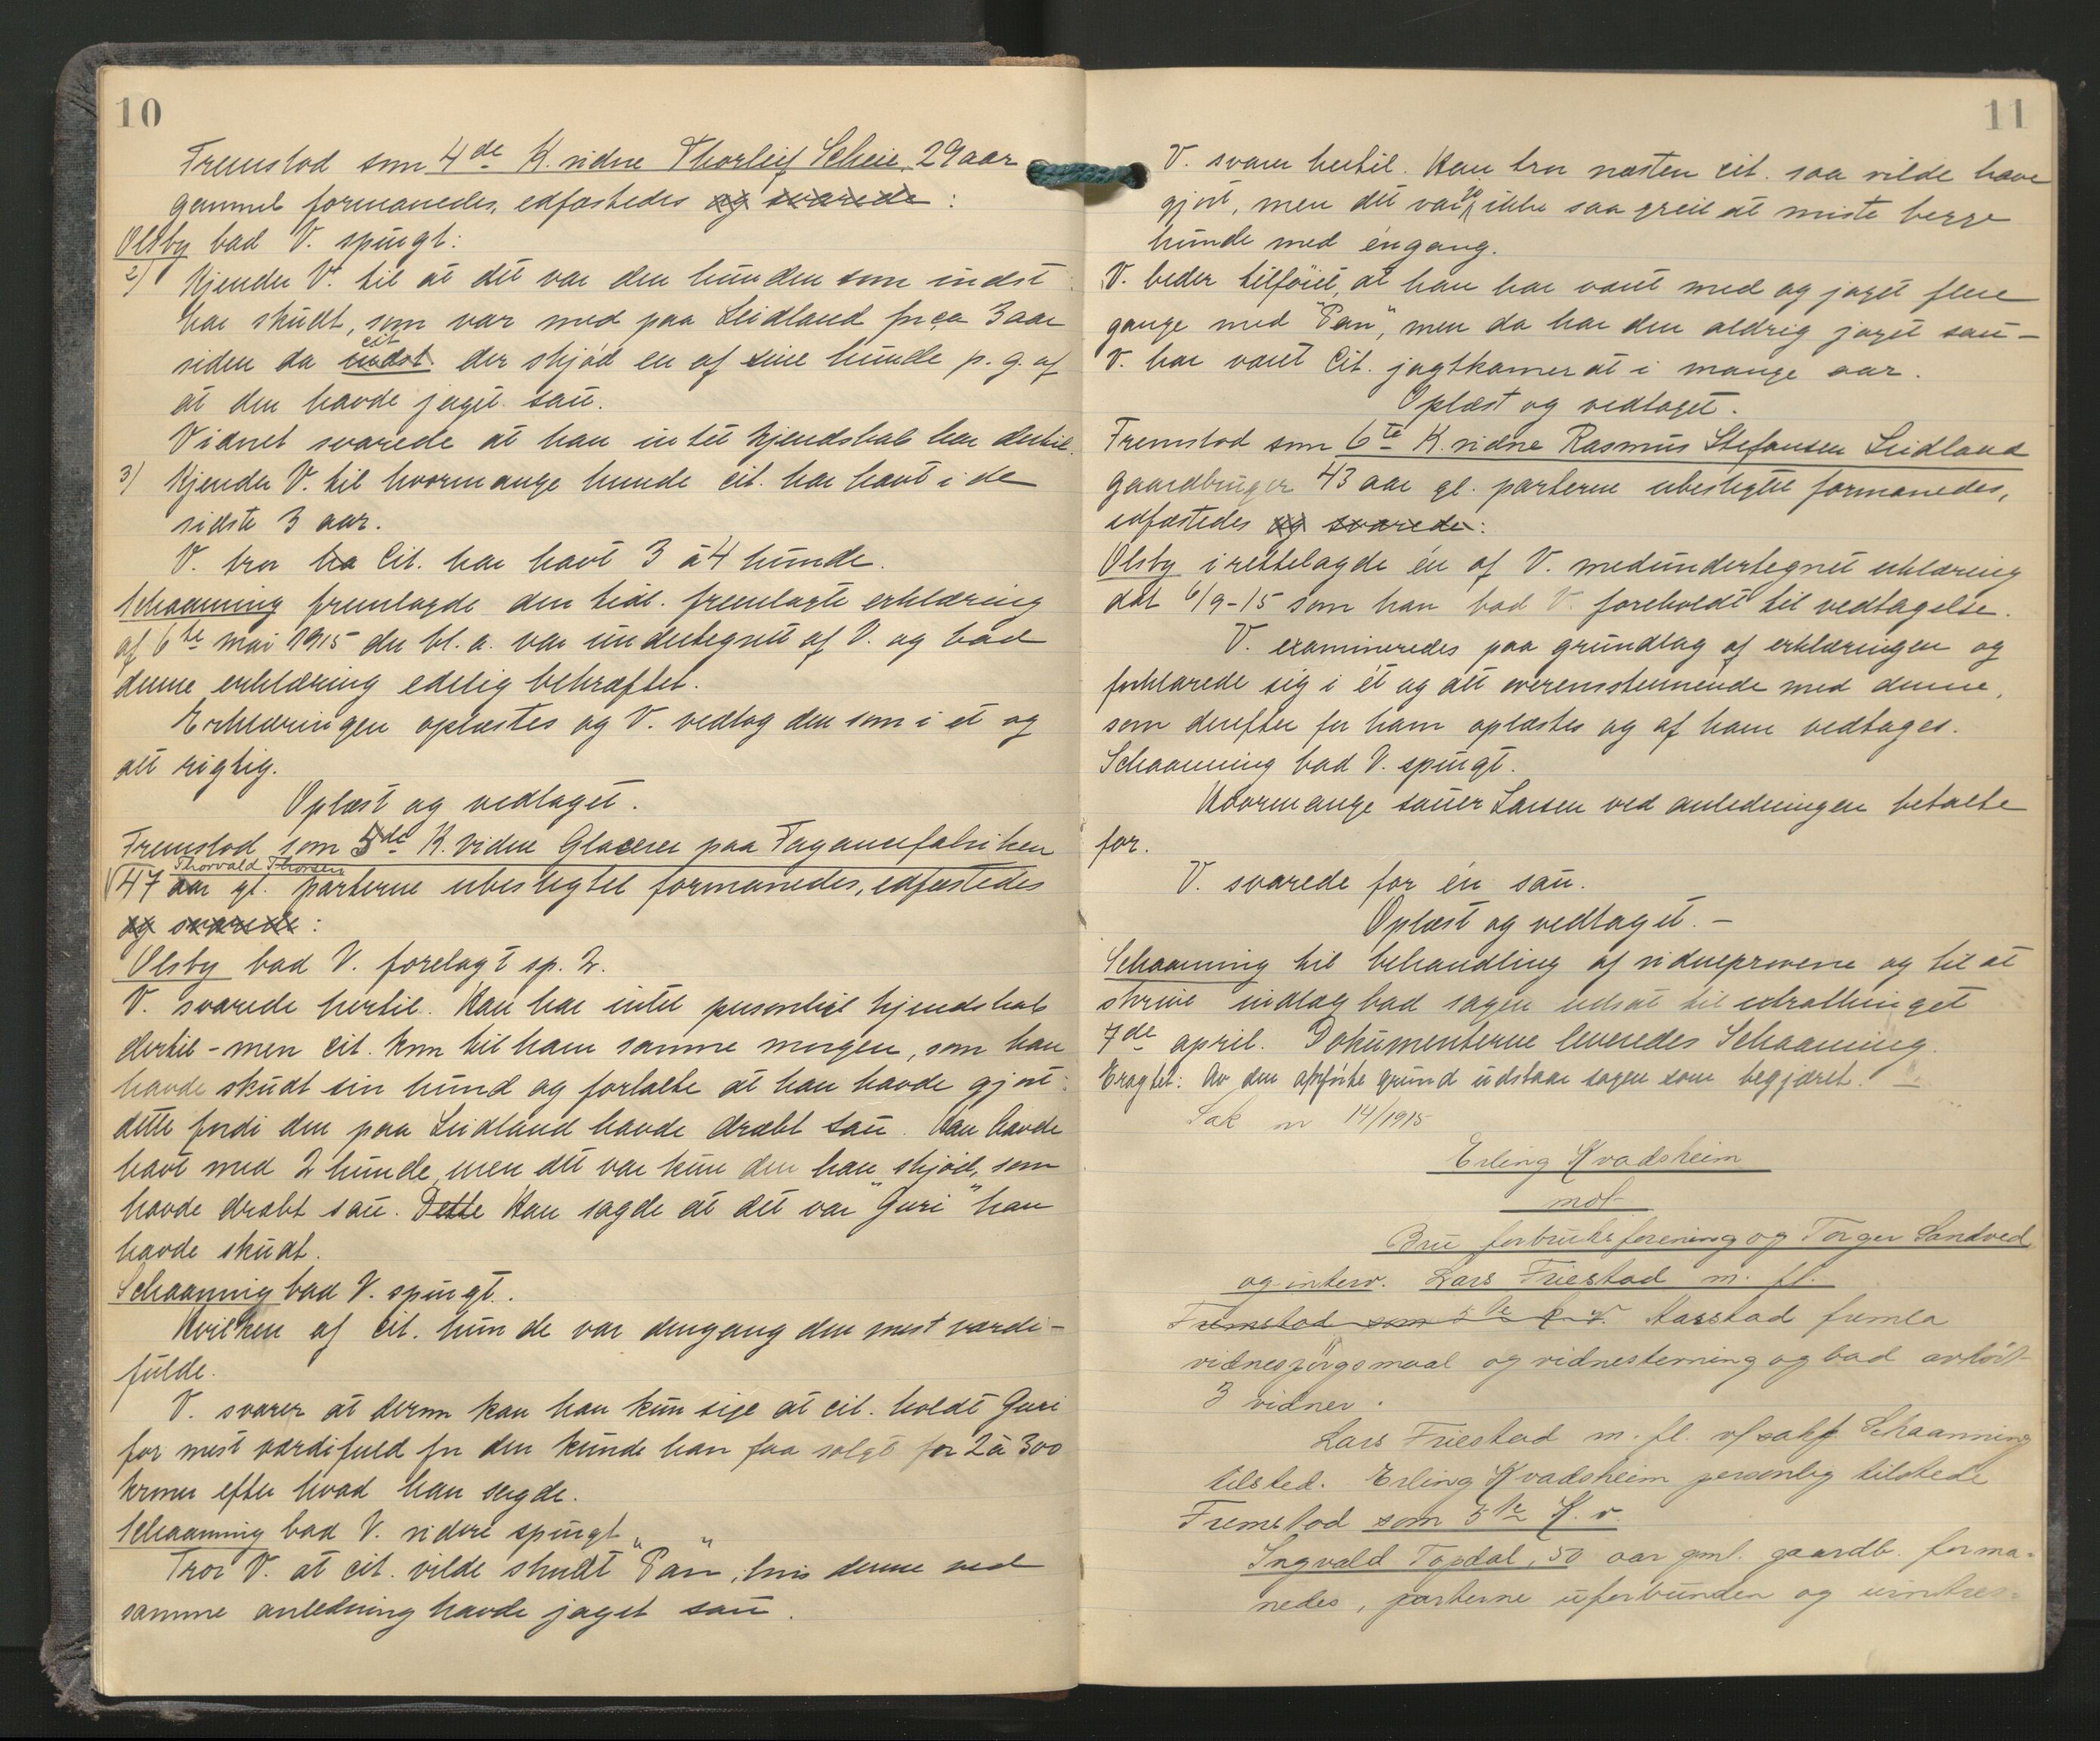 10
Fremstod som 4de K. vidne Thorleif Scheie. 29 aar
gammel formanedes, edfæstedes og svarede :
Olsby bad V. spurgt:
2) Kjender V. til at det var den hunden som indst
har skudt, som var med paa Leidland for ca 3 aar
siden da indst. cit der skjød en af sine hunde p. g. af
at den havde jaget sau.
Vidnet svarede at han intet kjendskab har dertil.
3) Kjender V. til hvormange hunde cit. har havt i de
sidste 3 aar.
V. tror ha Cit. har havt 3 à 4 hunde.
Schaanning fremlagde den tidl. fremlagte erklæring
af 6te mai 1915 der bl. a. var undertegnet af V. og bad
denne erklæring edelig bekræftet.
Erklæringen oplæstes og V. vedtog den som i et og
alt rigtig.
Oplæst og vedtaget.
Fremstod som 5de K. vidne Glacerer paa Fayancefabriken
Thorvald Thorsen
47 aar gl. parterne ubeslegtet formanedes, edfæstedes
og svarede :
Olsby bad V. forelagt sp. 2.
V. svarede hertil. Han har intet personligt kjendskab
dertil - men cit. kom til ham samme morgen, som han
havde skudt sin hund og fortalte at han havde gjort
dette fordi den paa Leidland havde dræbt sau. Han havde
havt med 2 hunde, men det var kun den han skjød, som
havde dræbt sau. Dette Han sagde at det var "Guri" han
havde skudt.
Schaanning bad V. spurgt.
Hvilken af cit. hunde var dengang den mest værdi-
fulde.
V. svarer at derom kan han kun sige at cit. holdt Guri
for mest værdifuld for den kunde han faa solgt for 2 à 300
kroner efter hvad han sagde.
Schaanning bad V. videre spurgt
Tror V. at cit. vilde skudt "Pan", hvis denne ved
samme anledning havde jaget sau.
11
V. svarer hertil. Han tror næsten cit. saa vilde have
gjort, men det var jo ikke saa greit at miste begge
hunde med éngang.
V. beder tilføiet, at han har været med og jaget flere
gange med "Pan", men da har den aldrig jaget sau -
V. har været Cit. jagtkamerat i mange aar.
Oplæst og vedtaget.
Fremstod som 6te K. vidne Rasmus Stefansen Leidland
gaardbruger 43 aar gl. parterne ubeslegtet formanedes,
edfæstedes og svarede:
Olsby irettelagde én af V. medundertegnet erklæring
dat 6/9-15 som han bad V. foreholdt til vedtagelse.
V. examineredes paa grundlag af erklæringen og
forklarede sig i ét og alt overensstemmende med denne,
som derefter for ham oplæstes og af ham vedtages.
Schaanning bad V. spurgt.
Hvormange sauer Larsen ved anledningen betalte
for.
V. svarede for én sau.
Oplæst og vedtaget. -
Schaanning til behandling af vidneprovene og til at
skrive indlæg bad sagen udsat til extrathinget
7de april. Dokumenterne leveredes Schaanning.
Eragtet: Av den anførte grund udstaar sagen som begjæret.
Sak nr 14/1915
Erling Kvadsheim
mot
Bru forbruksforening og Torger Sandved
og interv. Lars Friestad m. fl.
Fremstod som 5te K. V. Harstad fremla
vidnespørgsmaal og vidnestevning og bad avhørt
3 vidner.
Lars Friestad m. fl. v/ sakf. Schaanning
tilsted. Erling Kvadsheim personlig tilstede
Fremstod som 5te K. v.
Ingvald Topdal, 50 aar gml. gaardb. forma-
nedes, parterne uforbunden og uintres-